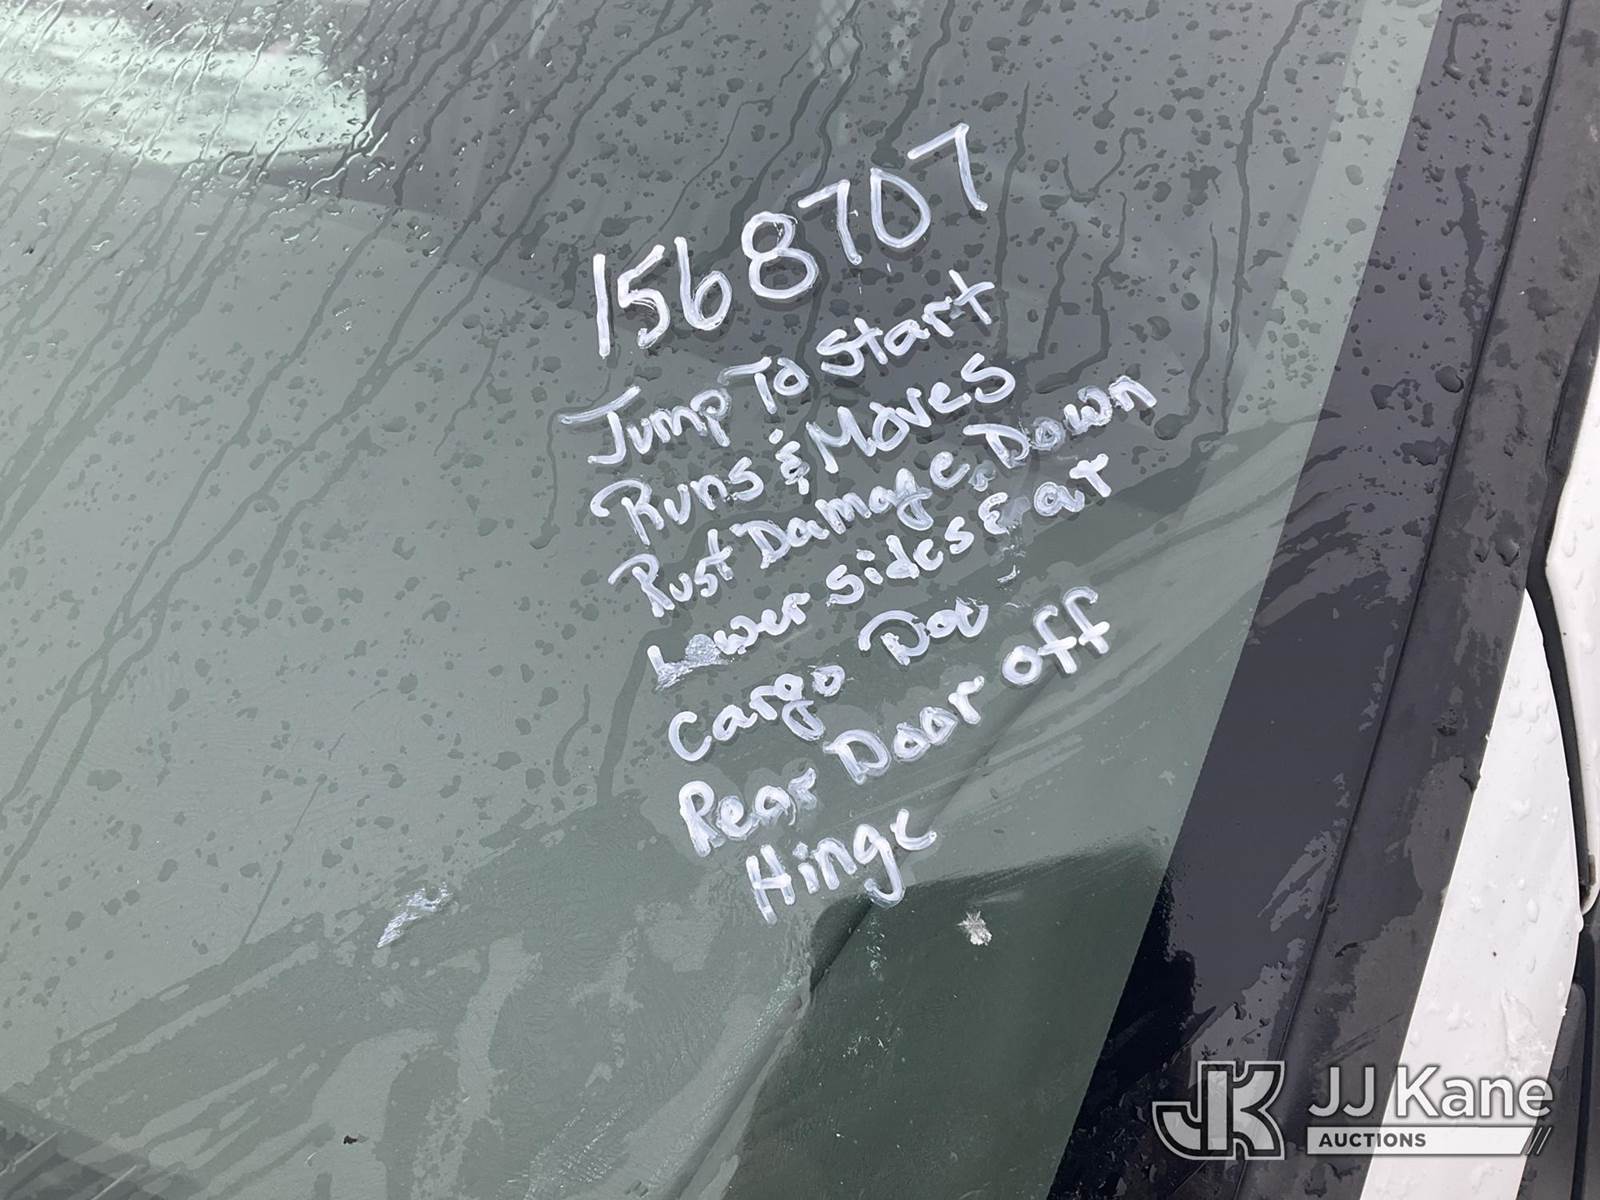 1568707
Jump To Start
Runs & Moves
Rust Damage Down
Lower sides & at
Cargo Doo
Rear Door off
Hinge
JK
JJ Kane
AUCTIONS